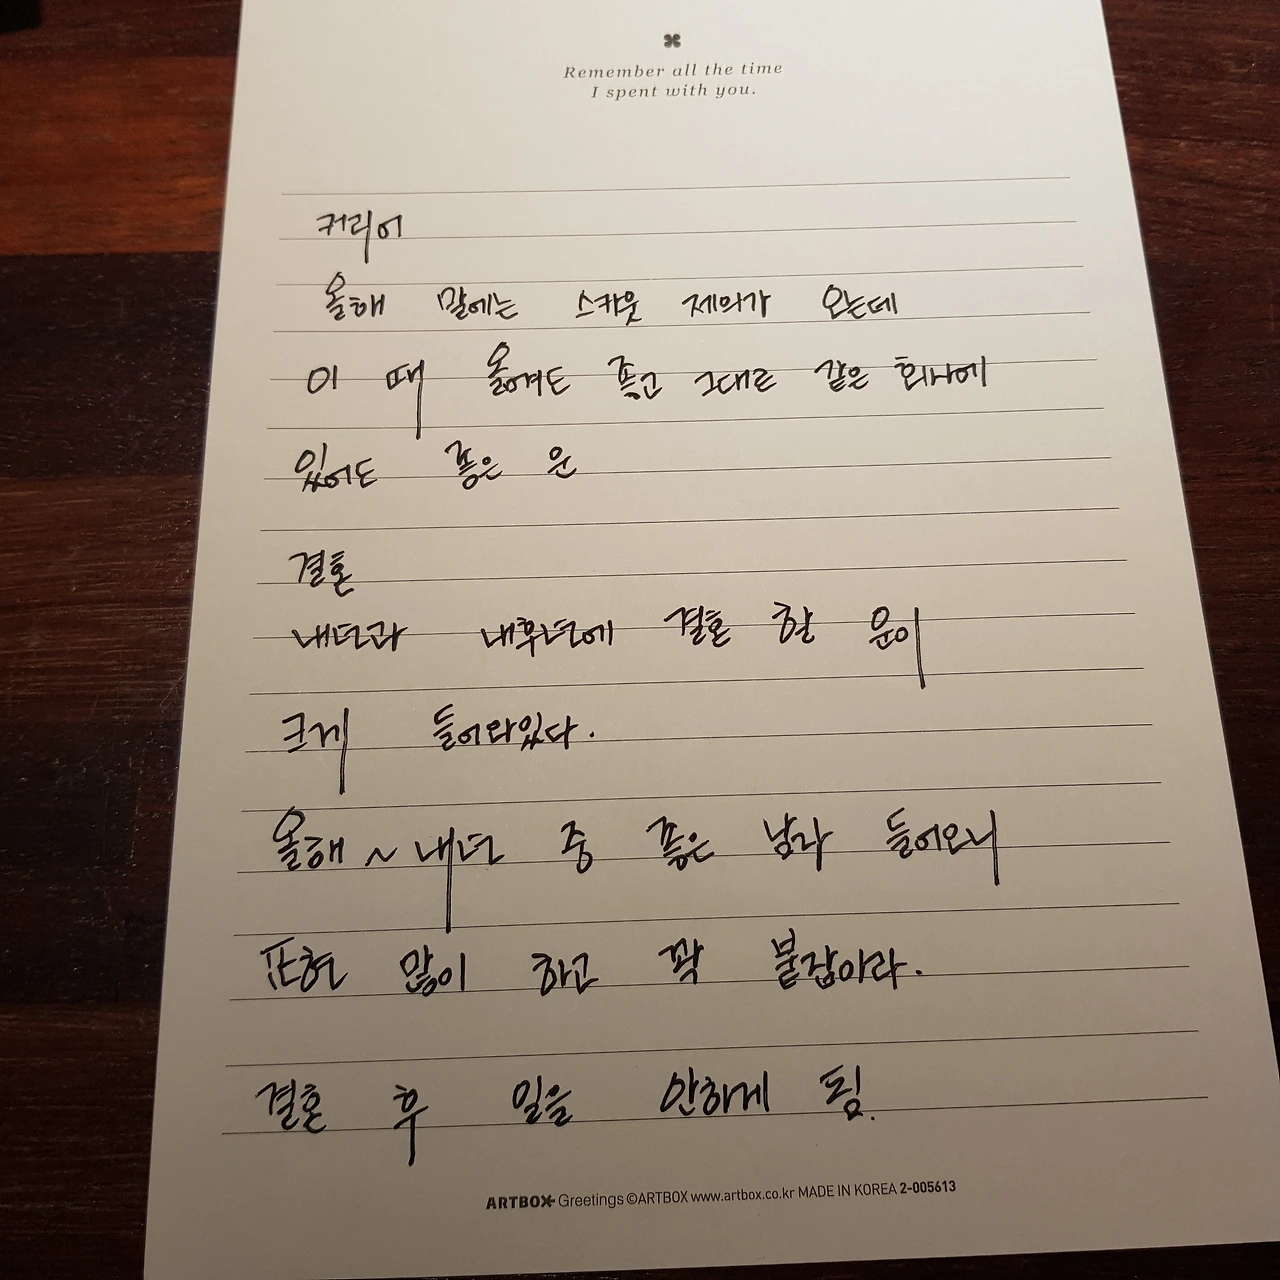 Remember all the time
I spent with you.
커리어
올해 말에는 스카웃 제의가 오는데
이 때 옮겨도 좋고 그대로 같은 회사에
있어도 좋은 운
결혼
내년과 내후년에 결혼 할 운이
크게 들어와있다.
올해 ~ 내년 중 좋은 남자 들어오니
표현 많이 하고 꽉 붙잡아라.
결혼 후 일을 안하게 됨.
ARTBOX Greetings ©ARTBOX www.artbox.co.kr MADE IN KOREA 2-005613